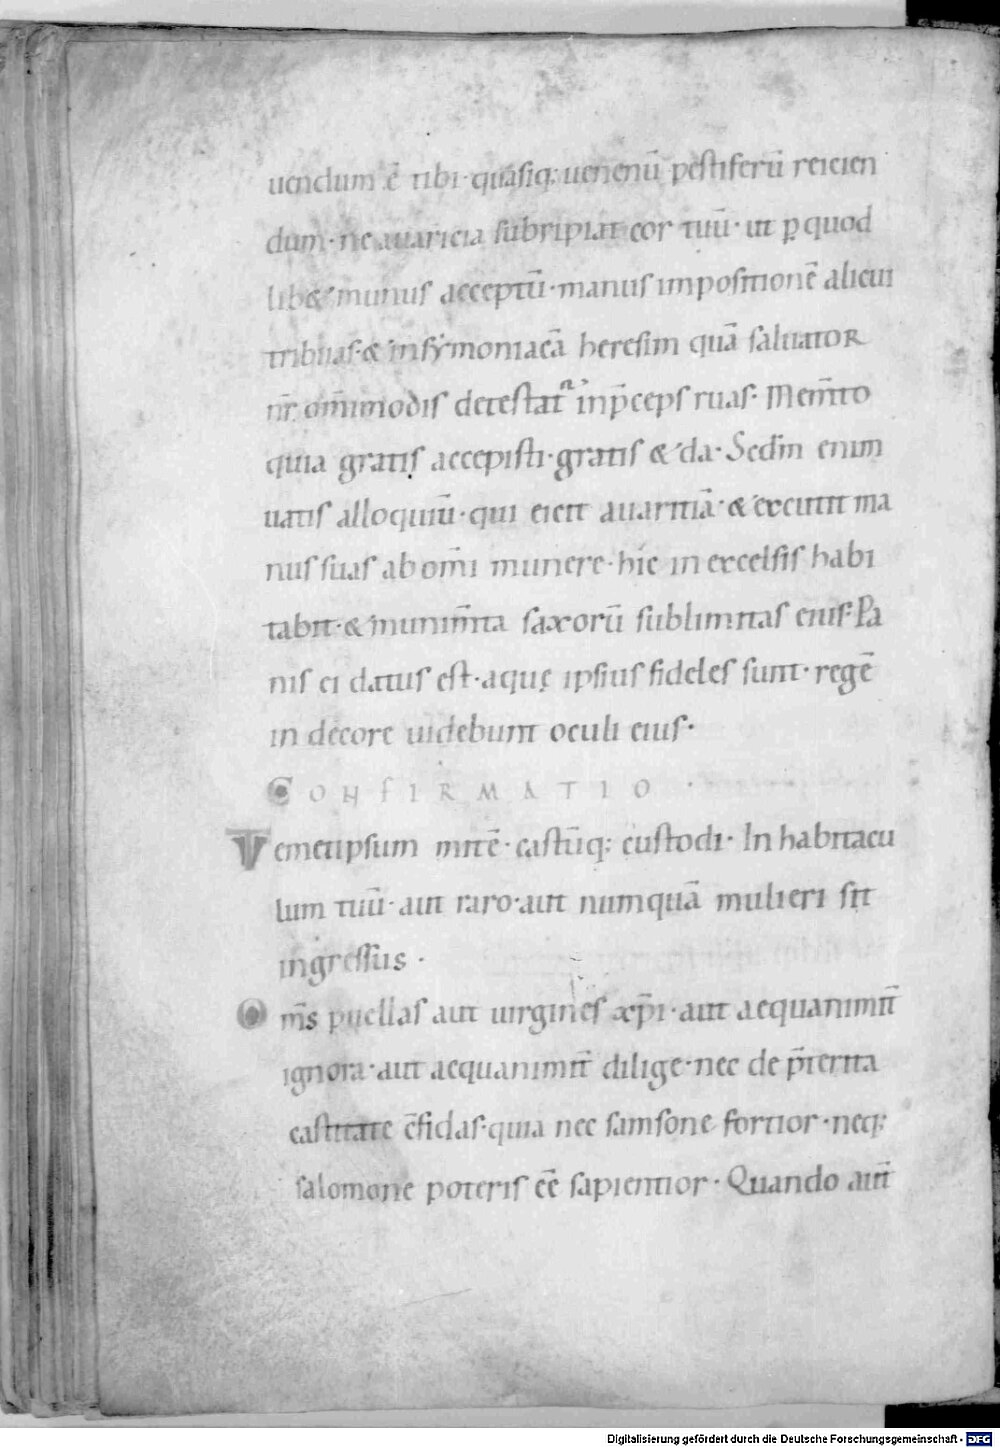 uendum .ē tibi· quasiq; uenenū pestiferū reicien
dum· ne auaricia subripiat cor tuū· ut ꝑ quod
lib& munus acceptū· manus impositionē alicui
tribuas· & in symoniacā heresim quā saluator
nr̄ om̄imodis detestat᷑ in p̄ceps ruas· Mem̄to
quia gratis accepisti· gratis & da· Sedm̄ enim
uatis alloquiū· qui eicit auaritiā· & excutit ma
nus suas ab om̄i munere· hic in excelsis habi
tabit· & munim̄ta saxorū sublimitas eius· Pa
nis ei datus est· aquę ipsius fideles sunt· regē
in decore uidebunt oculi eius·
CONFIRMATIO·
Temetipsum mitē· castūq; custodi· In habitacu
lum tuū· aut raro· aut numquā mulieri sit
ingressus·
Om̄s puellas aut uirgines xp̄i· aut aequanimit̄
ignora· aut aequanimit̄ dilige· nec de p̄terita
castitate c̄fidas· quia nec samsone fortior· neq;
salomone poteris ēē sapientior· Quando aut̄
Digitalisierung gefördert durch die Deutsche Forschungsgemeinschaft - DFG